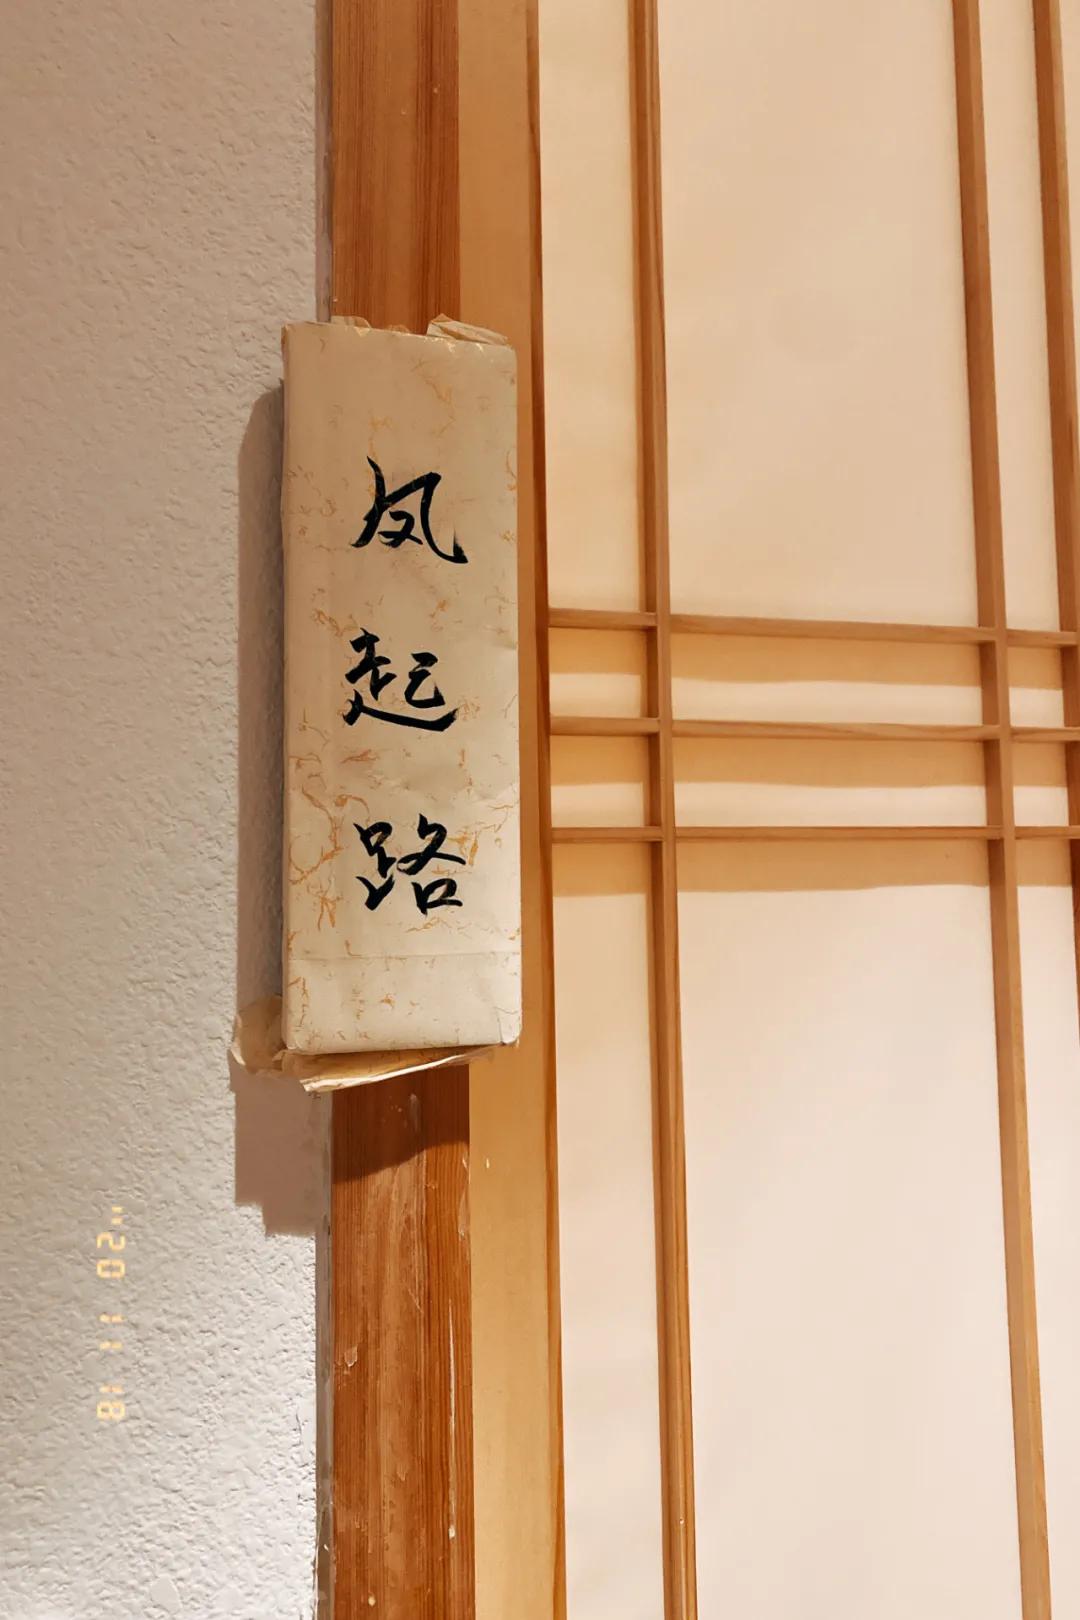 凤起路
"20 11 18